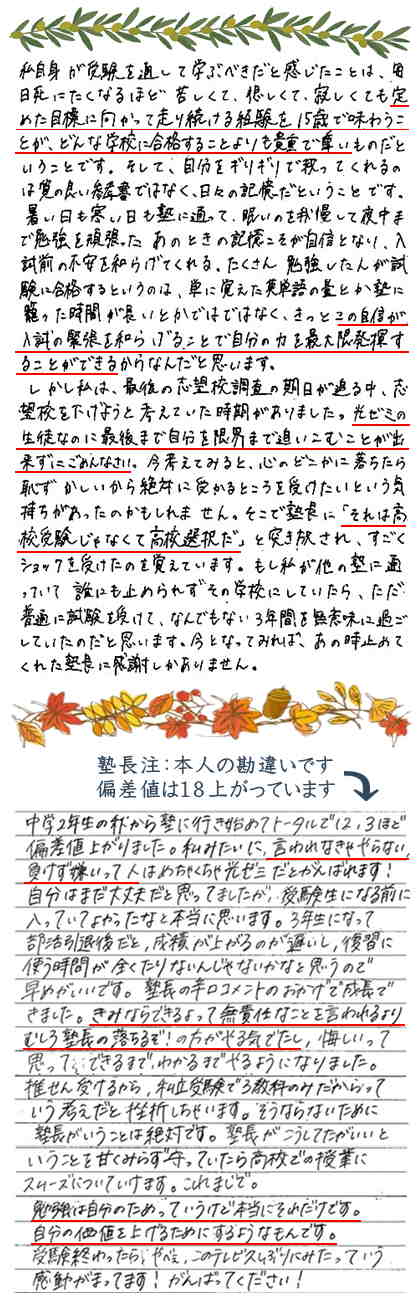 私自身が受験を通して学ぶべきだと感じたことは、毎
日死にたくなるほど苦しくて、悔しくて、寂しくても定
めた目標に向かって走り続ける経験を15歳で味わうこ
とが、どんな学校に合格することよりも貴重で尊いものだと
いうことです。そして、自分をギリギリで救ってくれるの
は質の良い参考書ではなく、日々の記憶だということです。
暑い日も寒い日も塾に通って、眠いのを我慢して夜中ま
で勉強を頑張ったあのときの記憶こそが自信となり、入
試前の不安を和らげてくれる。たくさん勉強した人が試
験に合格するというのは、単に覚えた英単語の量とか塾に
籠った時間が長いとかではではなく、きっとこの自信が
入試の緊張を和らげることで自分の力を最大限発揮す
ることができるからなんだと思います。
しかし私は、最後の志望校調査の期日が迫る中、志
望校を下げようと考えていた時期がありました。光ゼミの
生徒なのに最後まで自分を限界まで追いこむことが出
来ずにごめんなさい。今考えてみると、心のどこかに落ちたら
恥ずかしいから絶対に受かるところを受けたいという気
持ちがあったのかもしれません。そこで塾長に「それは高
校受験じゃなくて高校選択だ」と突き放され、すごく
ショックを受けたのを覚えています。もし私が他の塾に通
っていて誰にも止められずその学校にしていたら、ただ
普通に試験を受けて、なんでもない3年間を無意味に過ご
していたのだと思います。今となってみれば、あの時止めて
くれた塾長に感謝しかありません。
塾長注:本人の勘違いです
偏差値は18上がっています
中学2年生の秋から塾に行き始めてトータルで12,3ほど
偏差値上がりました。私みたいに、言われなきゃやらない、
負けず嫌いって人はめちゃくちゃ光ゼミだとがんばれます!
自分はまだ大丈夫だと思ってましたが、受験生になる前に
入っていてよかったなと本当に思います。3年生になって
部活引退後だと、成績が上がるのが遅いし、復習に
使う時間が全くたりないんじゃないかなと思うので
早めがいいです。塾長の辛口コメントのおかげで成長で
きました。きみならできるよって無責任なことを言われるより
むしろ塾長の落ちるぞ!の方がやる気でたし、悔しいって
思って、できるまで、わかるまでやるようになりました。
推せん受けるから、私立受験で3教科のみだからって
いう考えだと挫折しちゃいます。そうならないために
塾長がいうことは絶対です。塾長がこうしてたがいいと
いうことを甘くみらず守っていたら高校での授業に
スムーズについていけます。これまじで。
勉強は自分のためっていうけど本当にそれだけです。
自分の価値を上げるためにするようなもんです。
受験終わったら、やべぇ、このテレビ久しぶりにみたっていう
感動がまってます!がんばってください!